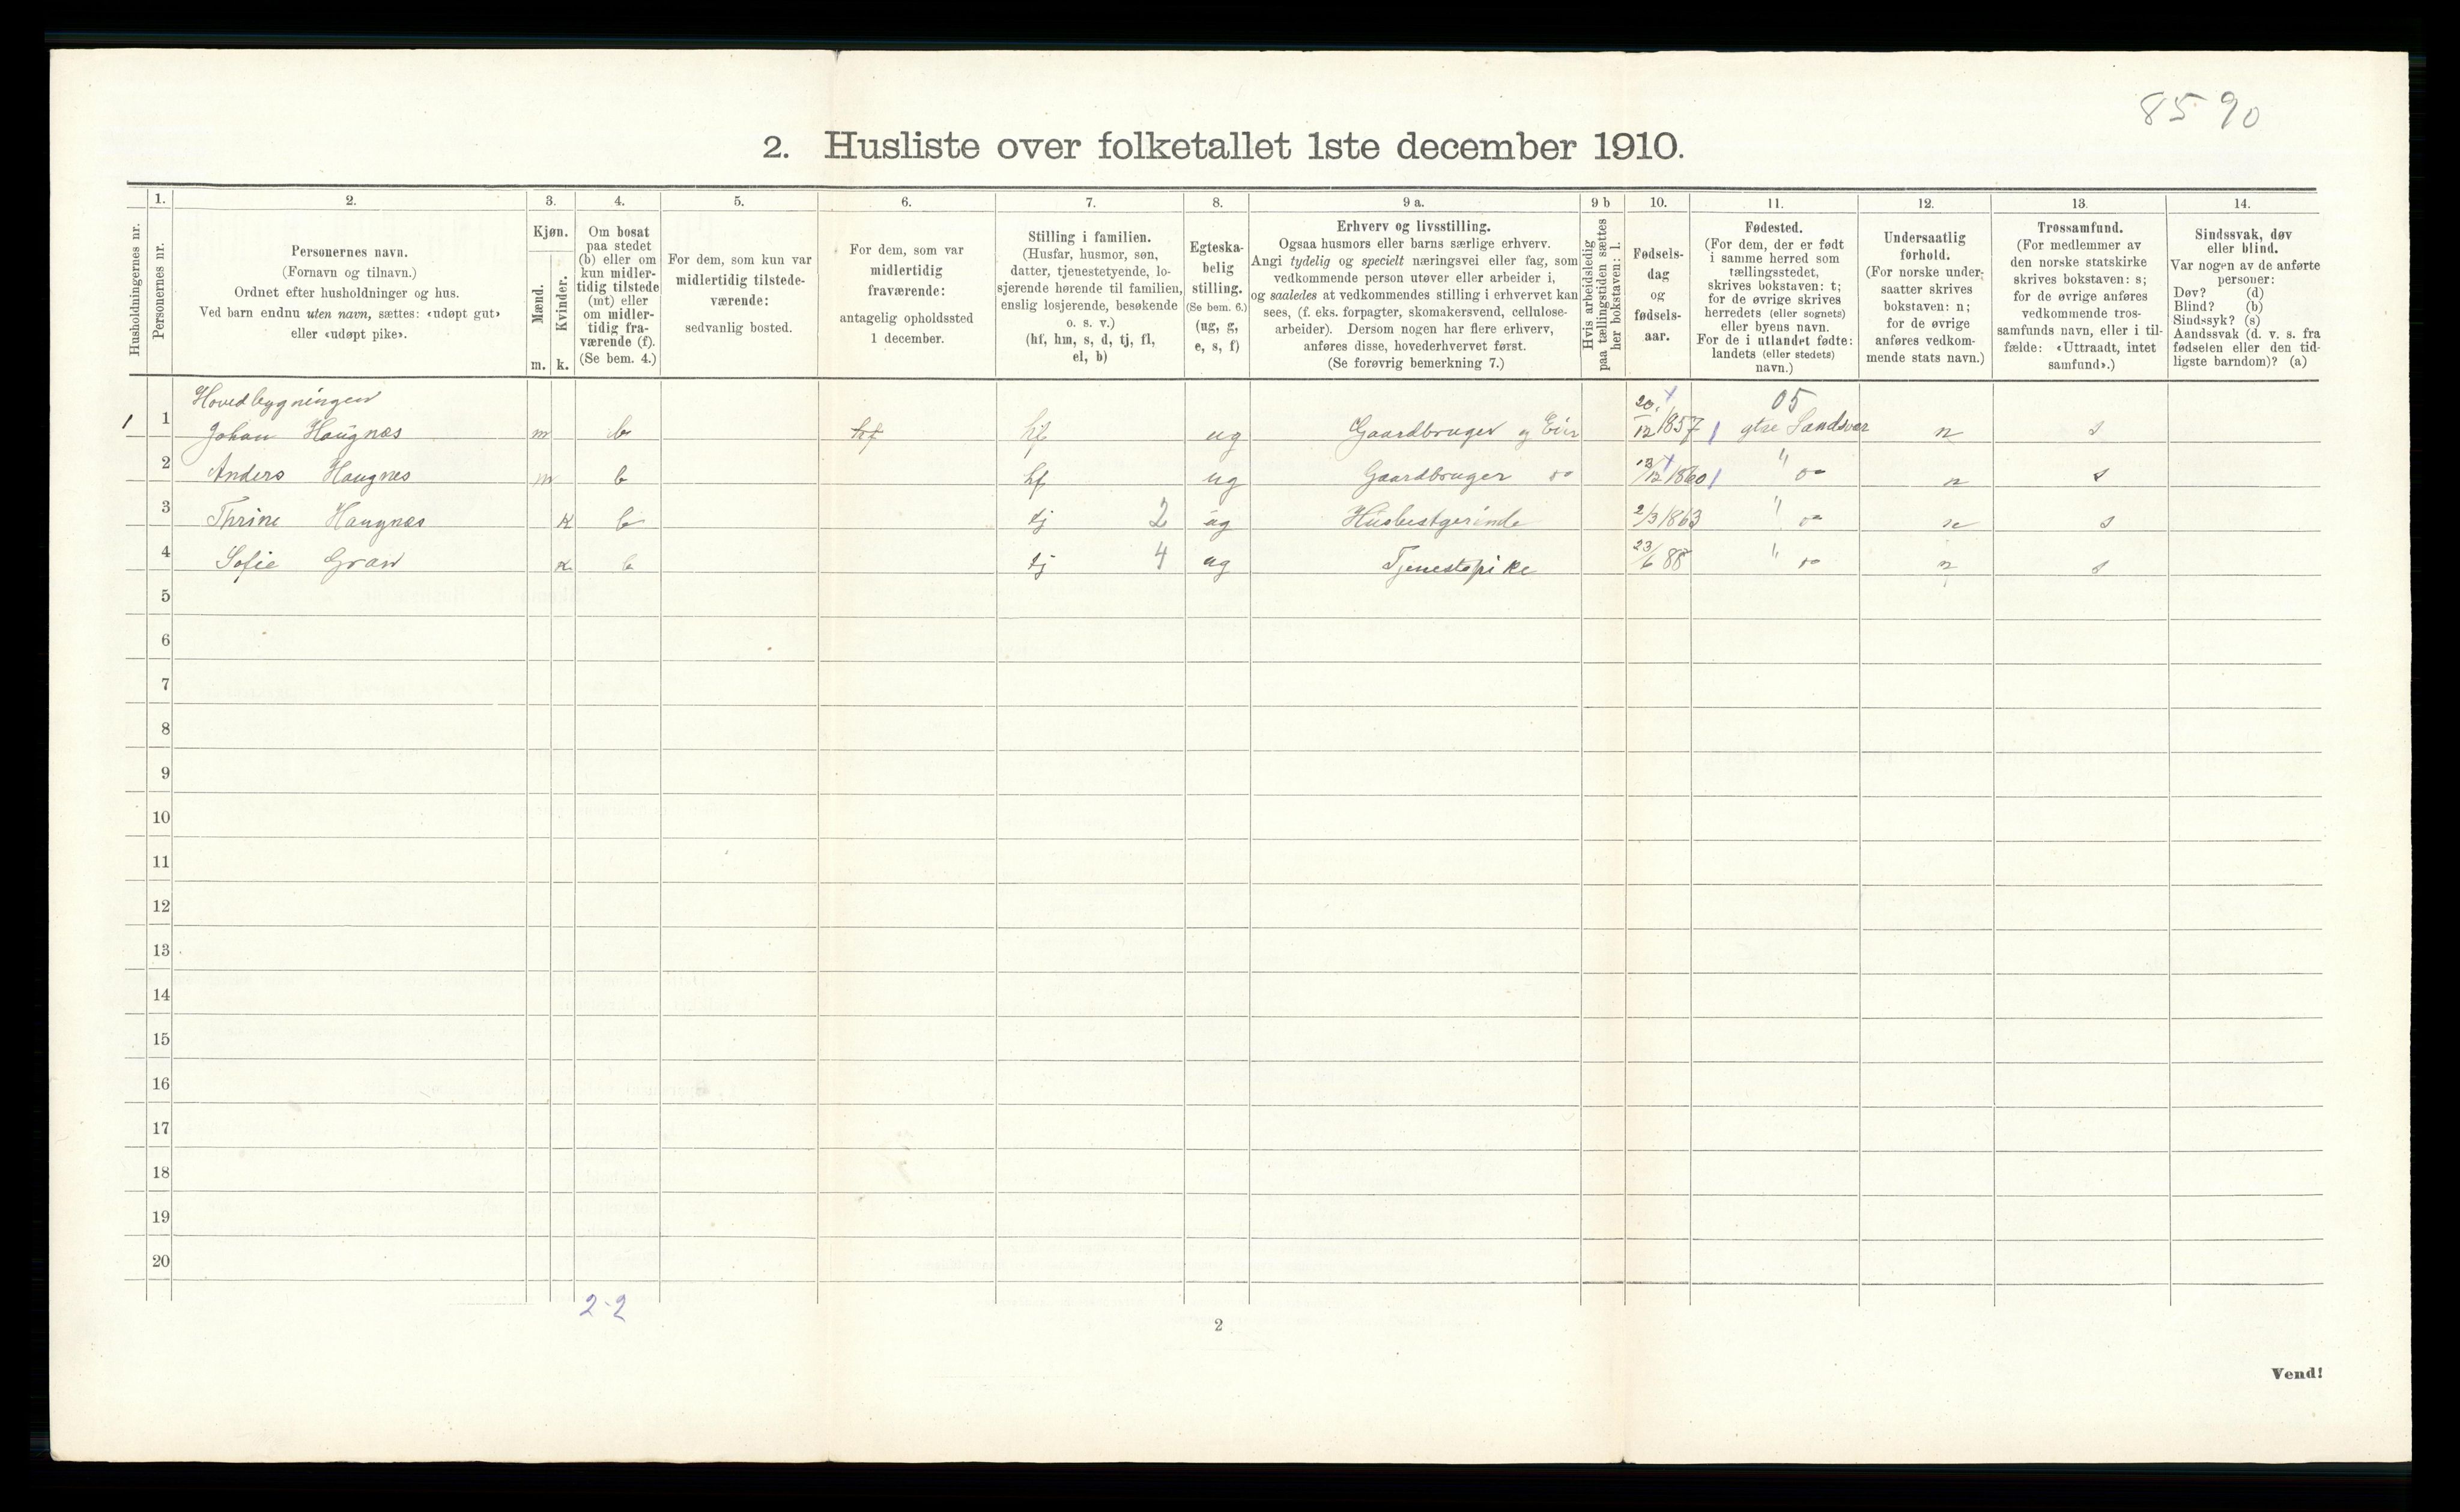 85 90
2. Husliste over folketallet 1ste december 1910.
1. 2. 3. 4. 5. 6. 7. 8. 9 a. 9 b 10. 11. 12. 13. 14.
Husholdningernes nr.
Personernes nr.
Personernes navn.
(Fornavn og tilnavn.)
Ordnet efter husholdninger og hus.
Ved barn endnu uten navn, sættes: «udøpt gut»
eller «udøpt pike».
Kjøn.
Mænd.
Kvinder.
m. k.
Om bosat
paa stedet
(b) eller om
kun midler-
tidig tilstede
(mt) eller
om midler-
tidig fra-
værende (f).
(Se bem. 4.)
For dem, som kun var
midlertidig tilstede-
værende:
sedvanlig bosted.
For dem, som var
midlertidig
fraværende:
antagelig opholdssted
1 december.
Stilling i familien.
(Husfar, husmor, søn,
datter, tjenestetyende, lo-
sjerende hørende til familien,
enslig losjerende, besøkende
o. s. v.)
(hf, hm, s, d, tj, fl,
el, b)
Egteska-
belig
stilling.
(Se bem. 6.)
(ug, g,
e, s, f)
Erhverv og livsstilling.
Ogsaa husmors eller barns særlige erhverv.
Angi tydelig og specielt næringsvei eller fag, som
vedkommende person utøver eller arbeider i,
og saaledes at vedkommendes stilling i erhvervet kan
sees, (f. eks. forpagter, skomakersvend, cellulose-
arbeider). Dersom nogen har flere erhverv,
anføres disse, hovederhvervet først.
(Se forøvrig bemerkning 7.)
Hvis arbeidsledig
paa tællingstiden sættes
her bokstaven: l.
Fødsels-
dag
og
fødsels-
aar.
Fødested.
(For dem, der er født
i samme herred som
tællingsstedet,
skrives bokstaven: t;
for de øvrige skrives
herredets (eller sognets)
eller byens navn.
For de i utlandet fødte:
landets (eller stedets)
navn.)
Undersaatlig
forhold.
(For norske under-
saatter skrives
bokstaven: n;
for de øvrige
anføres vedkom-
mende stats navn.)
Trossamfund.
(For medlemmer av
den norske statskirke
skrives bokstaven: s;
for de øvrige anføres
vedkommende tros-
samfunds navn, eller i til-
fælde: «Uttraadt, intet
samfund».)
Sindssvak, døv
eller blind.
Var nogen av de anførte
personer:
Døv? (d)
Blind? (b)
Sindssyk? (s)
Aandssvak (d. v. s. fra
fødselen eller den tid-
ligste barndom)? (a)
Hovedbygningen 05
1 1 Johan Haugnæs m b hf hf ug Gaardbruger og Eier 20/12 1857 ytre Sandsvær n s
2 Anders Haugnæs m b hf ug Gaardbruger do 13/12 1860 " do n s
3 Thrine Haugnæs k b tj 2 ug Husbestyerinde 2/3 1863 " do n s
4 Sofie Gran k b tj 4 ug Tjenestepike 23/6 88 " do n s
5
6
7
8
9
10
11
12
13
14
15
16
17
18
19
20
2-2
2
Vend!